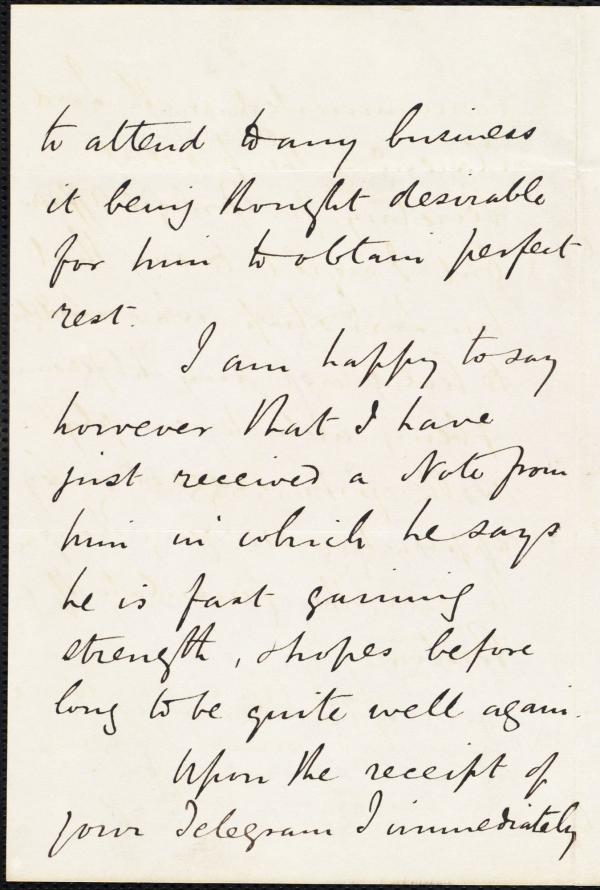 to attend to any business
it being thought desirable
for him to obtain perfect
rest.
I am happy to say
however that I have
just received a Note from
him in which he says
he is fast gaining
strength, & hopes before
long to be quite well again.
Upon the receipt of
your Telegram I immediately